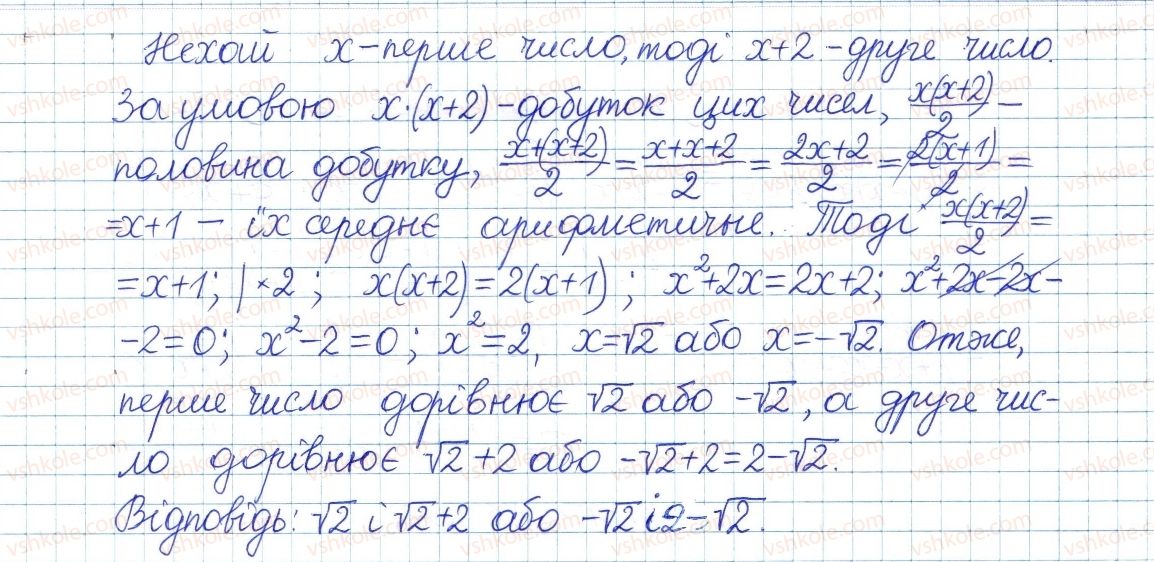 Нехай x – перше число, тоді x+2 – друге число.
За умовою x·(x+2) – добуток цих чисел, x(x+2)/2 –
половина добутку, x+(x+2)/2 = x+x+2/2 = 2x+2/2 = 2(x+1)/2 =
=x+1 – їх середнє арифметичне. Тоді x(x+2)/2 =
=x+1; |×2 ; x(x+2)=2(x+1) ; x²+2x=2x+2; x²+2x-2x-
-2=0; x²-2=0; x²=2, x=√2 або x=-√2. Отже,
перше число дорівнює √2 або -√2, а друге чис-
ло дорівнює √2+2 або -√2+2=2-√2.
Відповідь: √2 і √2+2 або -√2 і 2-√2.
vshkole.com